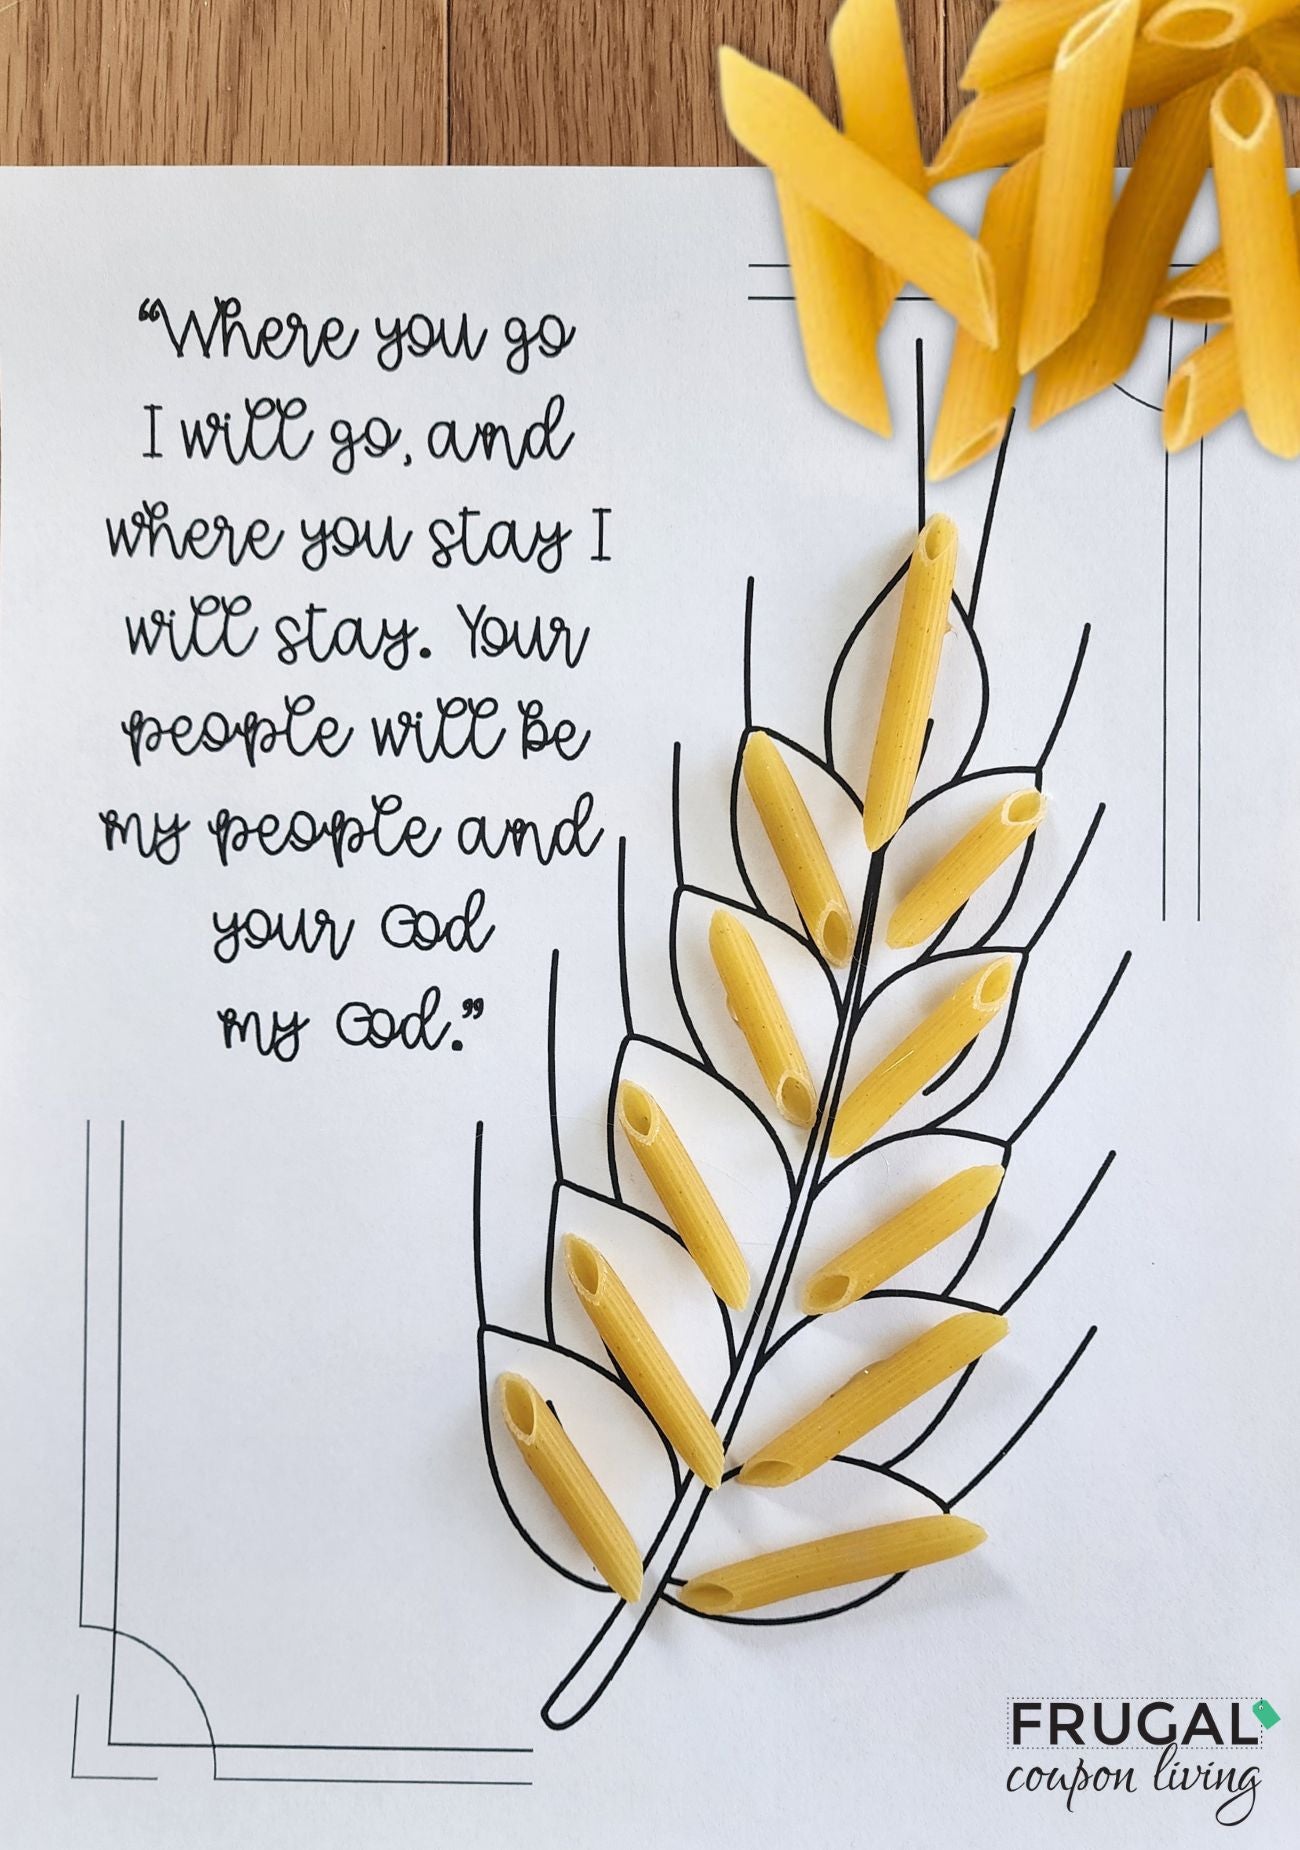 “Where you go
I will go, and
where you stay I
will stay. Your
people will be
my people and
your God
my God.”
FRUGAL
coupon living